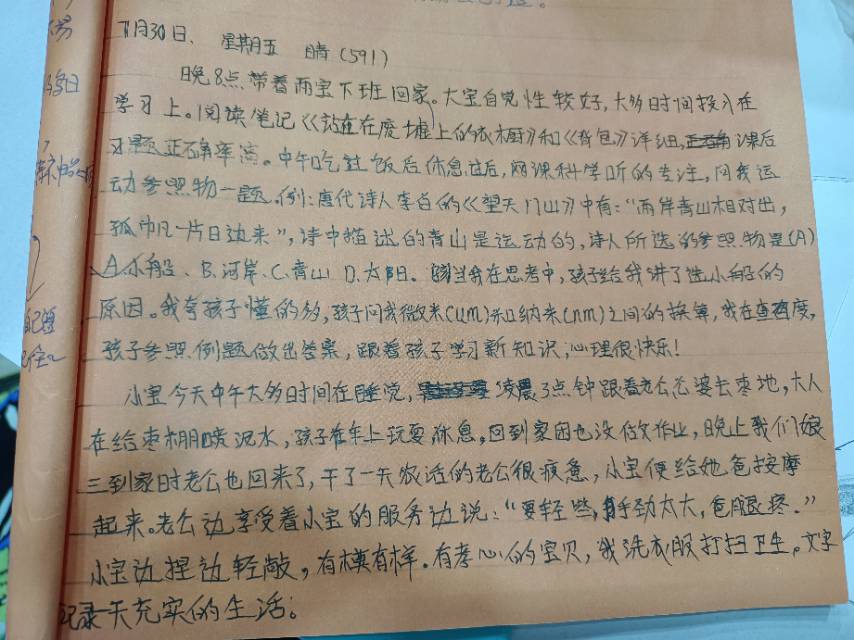 11月30日、 星期五 晴(591)
晚8点带着两宝下班回家。大宝自觉性较好,大多时间投入在
学习上。阅读笔记《站在废墟上的衣橱》和《背包》详细,课后
习题正确率高。中午吃过饭后休息过后,网课科学听的专注,问我运
动参照物一题。例:唐代诗人李白的《望天门山》中有:“两岸青山相对出,
孤帆一片日边来”,诗中描述的青山是运动的,诗人所选的参照物是(A)
A小船、B.河岸、C.青山 D.太阳。当我在思考中,孩子给我讲了选小船的
原因。我夸孩子懂的多,孩子问我微米(um)和纳米(nm)之间的换算,我在查百度,
孩子参照例题做出答案,跟着孩子学习新知识,心理很快乐!
小宝今天中午大多时间在睡觉,凌晨3点钟跟着老公去枣地,大人
在给枣棚喷泥水,孩子在车上玩耍休息,回到家困也没做作业,晚上我们娘
三到家时老公也回来了,干了一天农活的老公很疲惫,小宝便给她爸按摩
起来。老公边享受着小宝的服务边说:“要轻些,手劲太大,爸腿疼.”
小宝边捏边轻敲,有模有样。有孝心的宝贝,我洗衣服打扫卫生。文字
记录一天充实的生活。